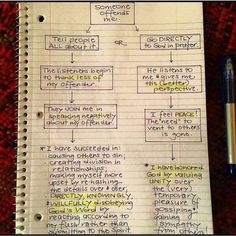 Someone
offends
me:
Tell people
ALL about it.
OR
Go DIRECTLY
to God in prayer.
The listeners begin
to think less of
my offender.
He listens to
me & gives me
His (better)
perspective.
They JOIN me in
speaking negatively
about my offender.
I feel PEACE!
The "need" to
vent to others
is gone.
* I have succeeded in
causing others to sin;
creating division in
relationships;
making myself more
upset by re-hashing
the details over & over;
DIRECTLY, KNOWINGLY,
WILLFULLY disobeying
God's Word by
reacting according to
my flesh rather than
submitting to the Spirit.
* I have honored
God by valuing
UNITY over
the (very)
temporary
pleasure of
gossiping &
gaining
sympathy
from others.